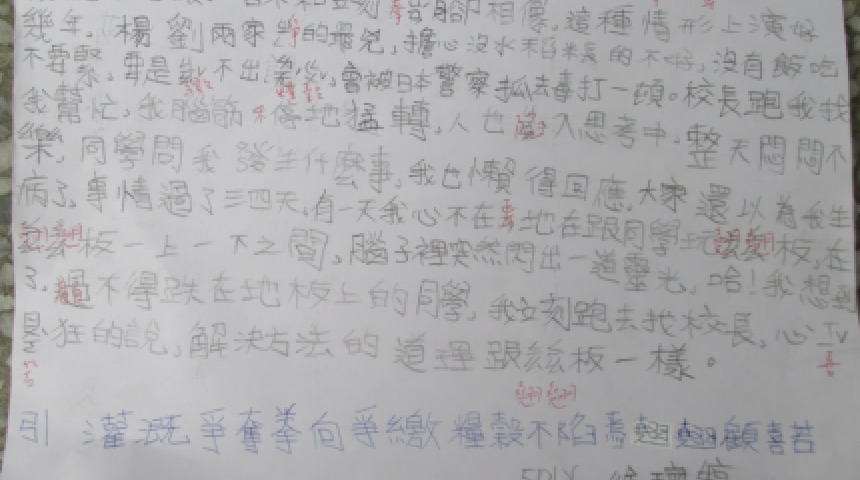 腳相像,這種情形上演好
幾年,楊劉兩家爭的最兇,擔心沒水稻米長的不好,沒有飯吃
不要緊,要是繳不出,會被日本警察抓去毒打一頓。校長跑來找
我幫忙,我腦筋不停地猛轉,人也陷入思考中,整天悶悶不
樂,同學問我發生什麼事,我也懶得回應,大家還以為我生
病了,事情過了三四天,有一天我心不在焉地在跟同學玩翹翹板,在
翹翹板一上一下之間,腦子裡突然閃出一道靈光,哈!我想到
了,顧不得跌在地板上的同學,我立刻跑去找校長,心
狂的說,解決方法的道理跟翹翹板一樣。
引 灌溉爭奪拳向爭繳糧穀不陷焉翹翹顧喜若